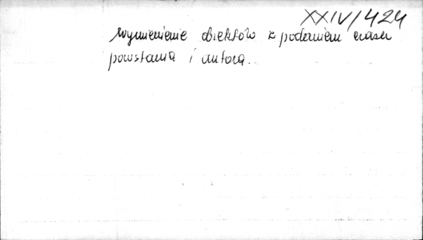 XXIV/424
wymienienie obiektów z podaniem czasu
powstania i autora.